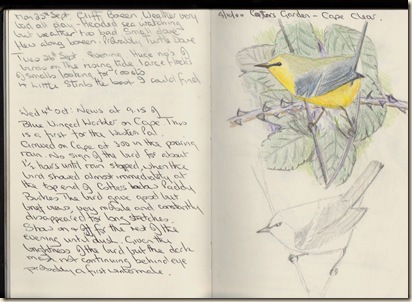 Mon 25th Sept. Cliff Boreen Weather very
bad all day - Headed sea watching
but weather too bad. Small dove
flew along boreen. Probably Turtle Dove
Tues 26th Sept Evening Huge no's of
on the rising tide large flocks
of smalls looking for roosts
Little Stint the best I could find
Wed 4th Oct. News at 9.15 of
Blue Winged Warbler on Cape This
is a first for the Western Pal.
Arrived on Cape at in the pouring
rain. No sign of the bird for about
1½ hours until rain stopped, when the
bird showed almost immediately at
the top end of Cotters below Paddy
Burkes The bird gave good but
brief views, very mobile and constantly
disappeared for long stretches.
Show on + off for the rest of the
evening until dusk. Given the
brightness of the bird but the dark
mask not continuing behind eye
probably a first winter male.
4/10/00 Cotters Garden - Cape Clear.